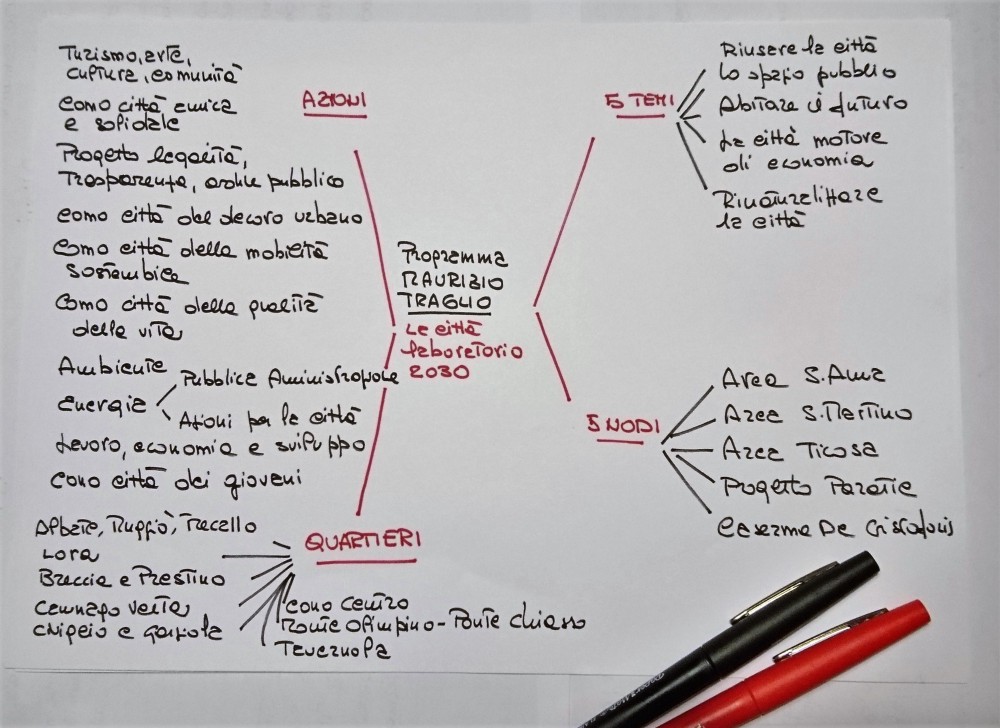 AZIONI
Turismo, arte,
cultura, comunità
Como città amica
e solidale
Progetto legalità,
Trasparenza, ordine pubblico
Como città del decoro urbano
Como città della mobilità
sostenibile
Como città della qualità
della vita
Ambiente
Energia
Pubblica Amministrazione
Azioni per la città
Lavoro, economia e sviluppo
Como città dei giovani
Programma
MAURIZIO
TRAGLIO
La città
laboratorio
2030
5 TEMI
Riusare la città
Lo spazio pubblico
Abitare il futuro
La città motore
di economia
Rinaturalizzare
la città
5 NODI
Area S. Anna
Area S. Martino
Area Ticosa
Progetto Paratie
Caserma De Cristoforis
QUARTIERI
Albate, Muggiò, Trecallo
Lora
Breccia e Prestino
Camnago Volta
Civiglio e Garzola
Como Centro
Monte Olimpino - Ponte Chiasso
Tavernola